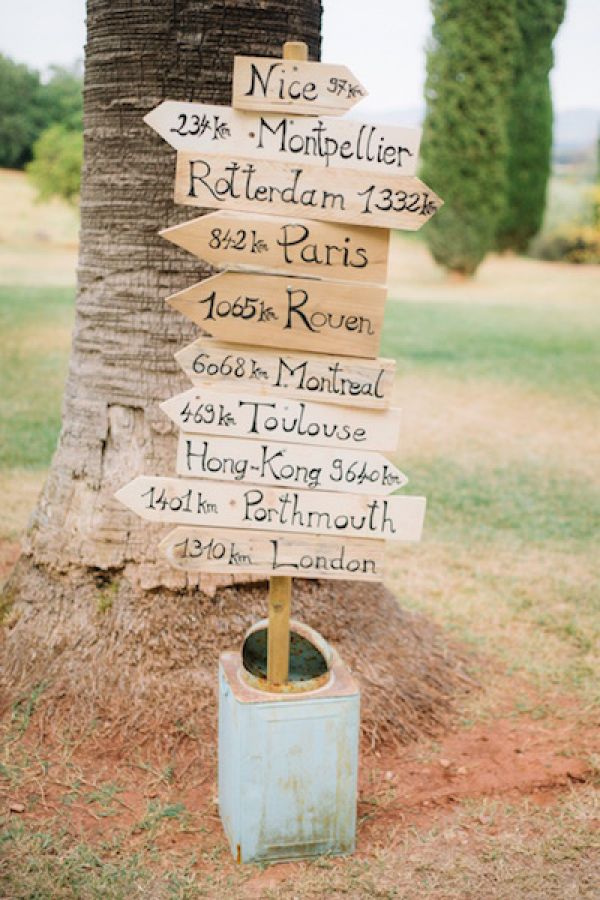 Nice 97km
234km • Montpellier
Rotterdam 1332km
842km Paris
1065km Rouen
6068 km Montreal
469km Toulouse
Hong-Kong 9640km
1401 km • Porthmouth
1310 km London